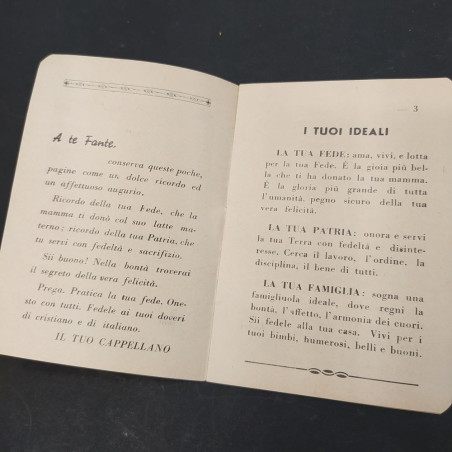 A te Fante.
conserva queste poche,
pagine come un dolce ricordo ed
un affettuoso augurio.
Ricordo della tua Fede, che la
mamma ti donò col suo latte ma-
terno; ricordo della tua Patria, che
tu servi con fedeltà e sacrifizio.
Sii buono! Nella bontà troverai
il segreto della vera felicità.
Prega. Pratica la tua fede. One-
sto con tutti. Fedele ai tuoi doveri
di cristiano e di italiano.
IL TUO CAPPELLANO
— 3
I TUOI IDEALI
LA TUA FEDE: ama, vivi, e lotta
per la tua Fede. È la gioia più bel-
la che ti ha donato la tua mamma.
È la gloria più grande di tutta
l'umanità. pegno sicuro della tua
vera felicità.
LA TUA PATRIA: onora e servi
la tua Terra con fedeltà e disinte-
resse. Cerca il lavoro, l'ordine, la
disciplina, il bene di tutti.
LA TUA FAMIGLIA: sogna una
famigliuola ideale, dove regni la
bontà, l'affetto, l'armonia dei cuori.
Sii fedele alla tua casa. Vivi per i
tuoi bimbi, numerosi, belli e buoni.